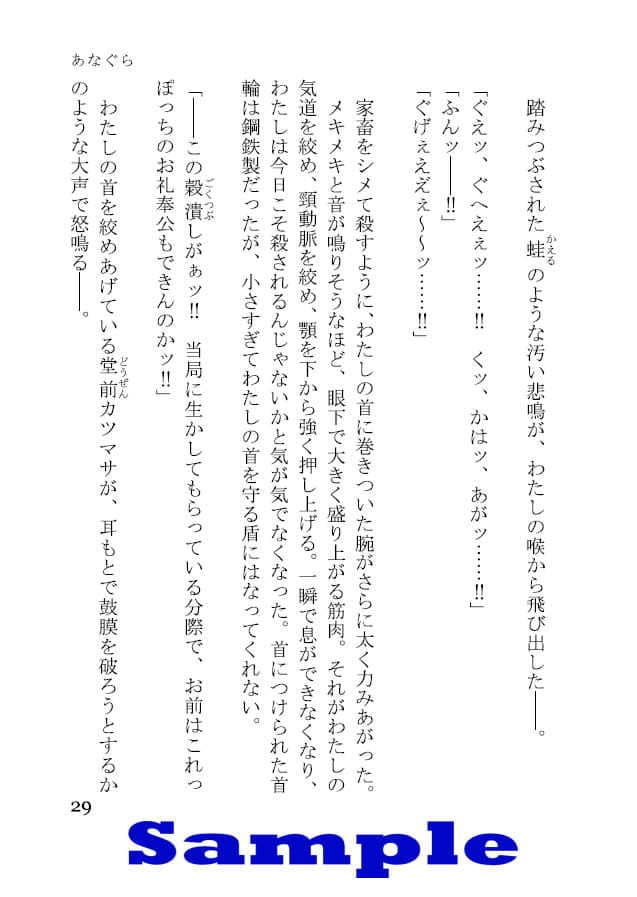 あなぐら
踏みつぶされた蛙のような汚い悲鳴が、わたしの喉から飛び出した――。
かえる
「ぐえッ、ぐへえぇッ……!! くッ、かはッ、あがッ……!!」
「ふんッ――!!」
「ぐげぇえぞぇ～～ッ……!!」
家畜をシメて殺すように、わたしの首に巻きついた腕がさらに太く力みあがった。
メキメキと音が鳴りそうなほど、眼下で大きく盛り上がる筋肉。それがわたしの
気道を絞め、頸動脈を絞め、顎を下から強く押し上げる。一瞬で息ができなくなり、
わたしは今日こそ殺されるんじゃないかと気が気でなくなった。首につけられた首
輪は鋼鉄製だったが、小さすぎてわたしの首を守る盾にはなってくれない。
「――この穀潰しがぁッ!! 当局に生かしてもらっている分際で、お前はこれっ
ごくつぶ
ぽっちのお礼奉公もできんのかッ!!」
わたしの首を絞めあげている堂前カツマサが、耳もとで鼓膜を破ろうとするか
どうぜん
のような大声で怒鳴る――。
29
Sample